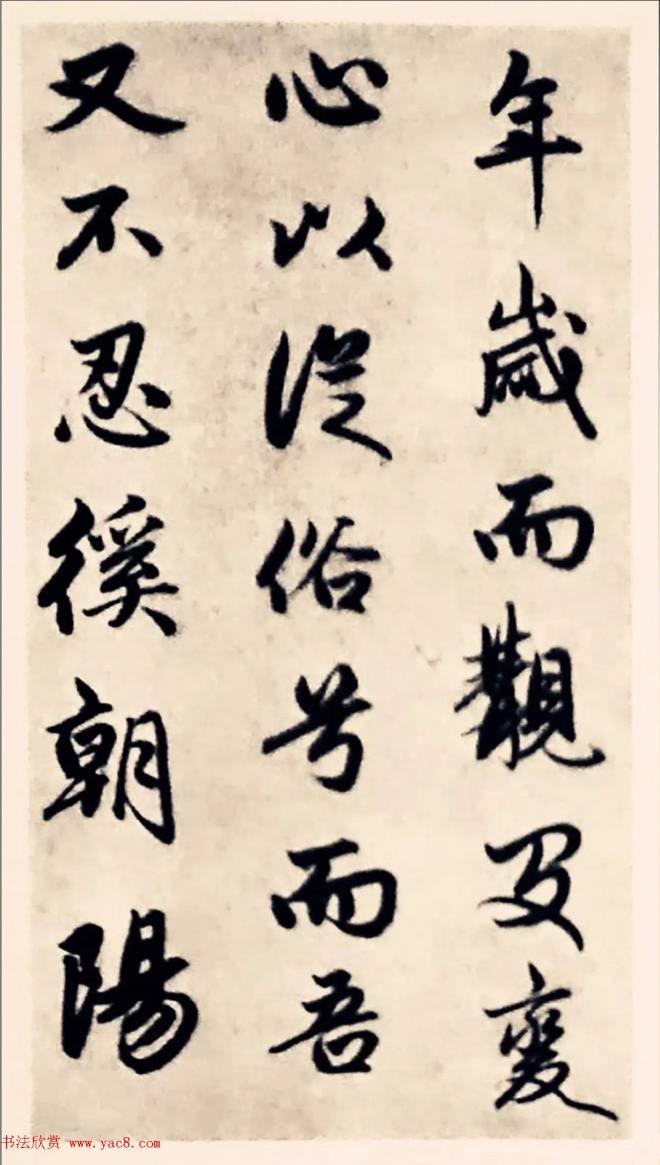 年歲而觀變
心以從俗兮而吾
又不忍徯朝陽
书法欣赏 www.yac8.com